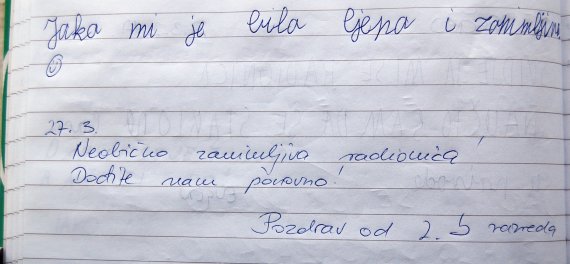 Jaka mi je bila ljepa i zanimljiva
27. 3.
Neobično zanimljiva radionica!
Dođite nam ponovno!
Pozdrav od 2. b razreda